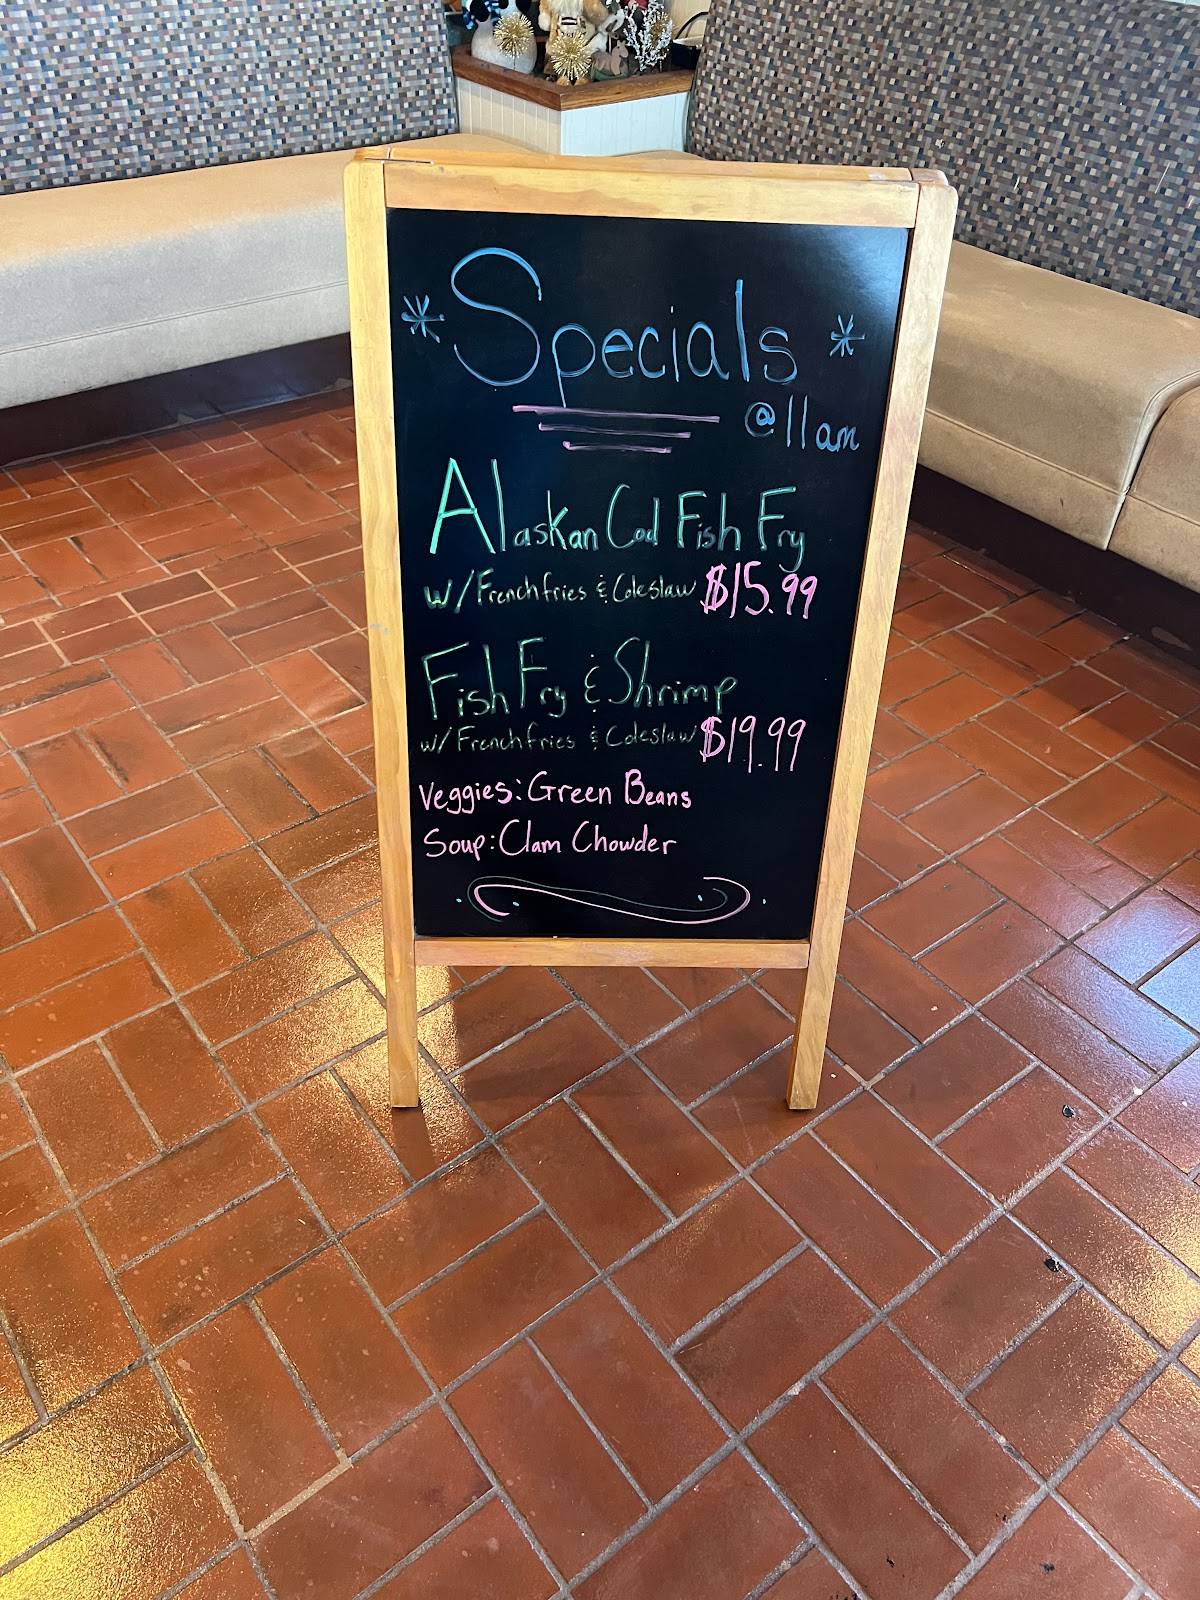 * Specials *
@ 11am
Alaskan Cod Fish Fry
w/ Frenchfries & Coleslaw $15.99
Fish Fry & Shrimp
w/ Frenchfries & Coleslaw $19.99
Veggies: Green Beans
Soup: Clam Chowder